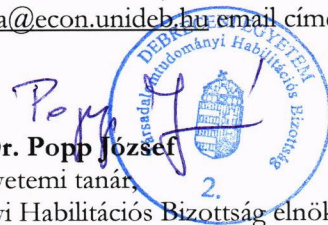 a@econ.unideb.hu email címe
DEBRECENI EGYETEM
Társadalomtudományi Habilitációs Bizottság
2.
Popp J
r. Popp József
yetemi tanár,
yi Habilitációs Bizottság elnök